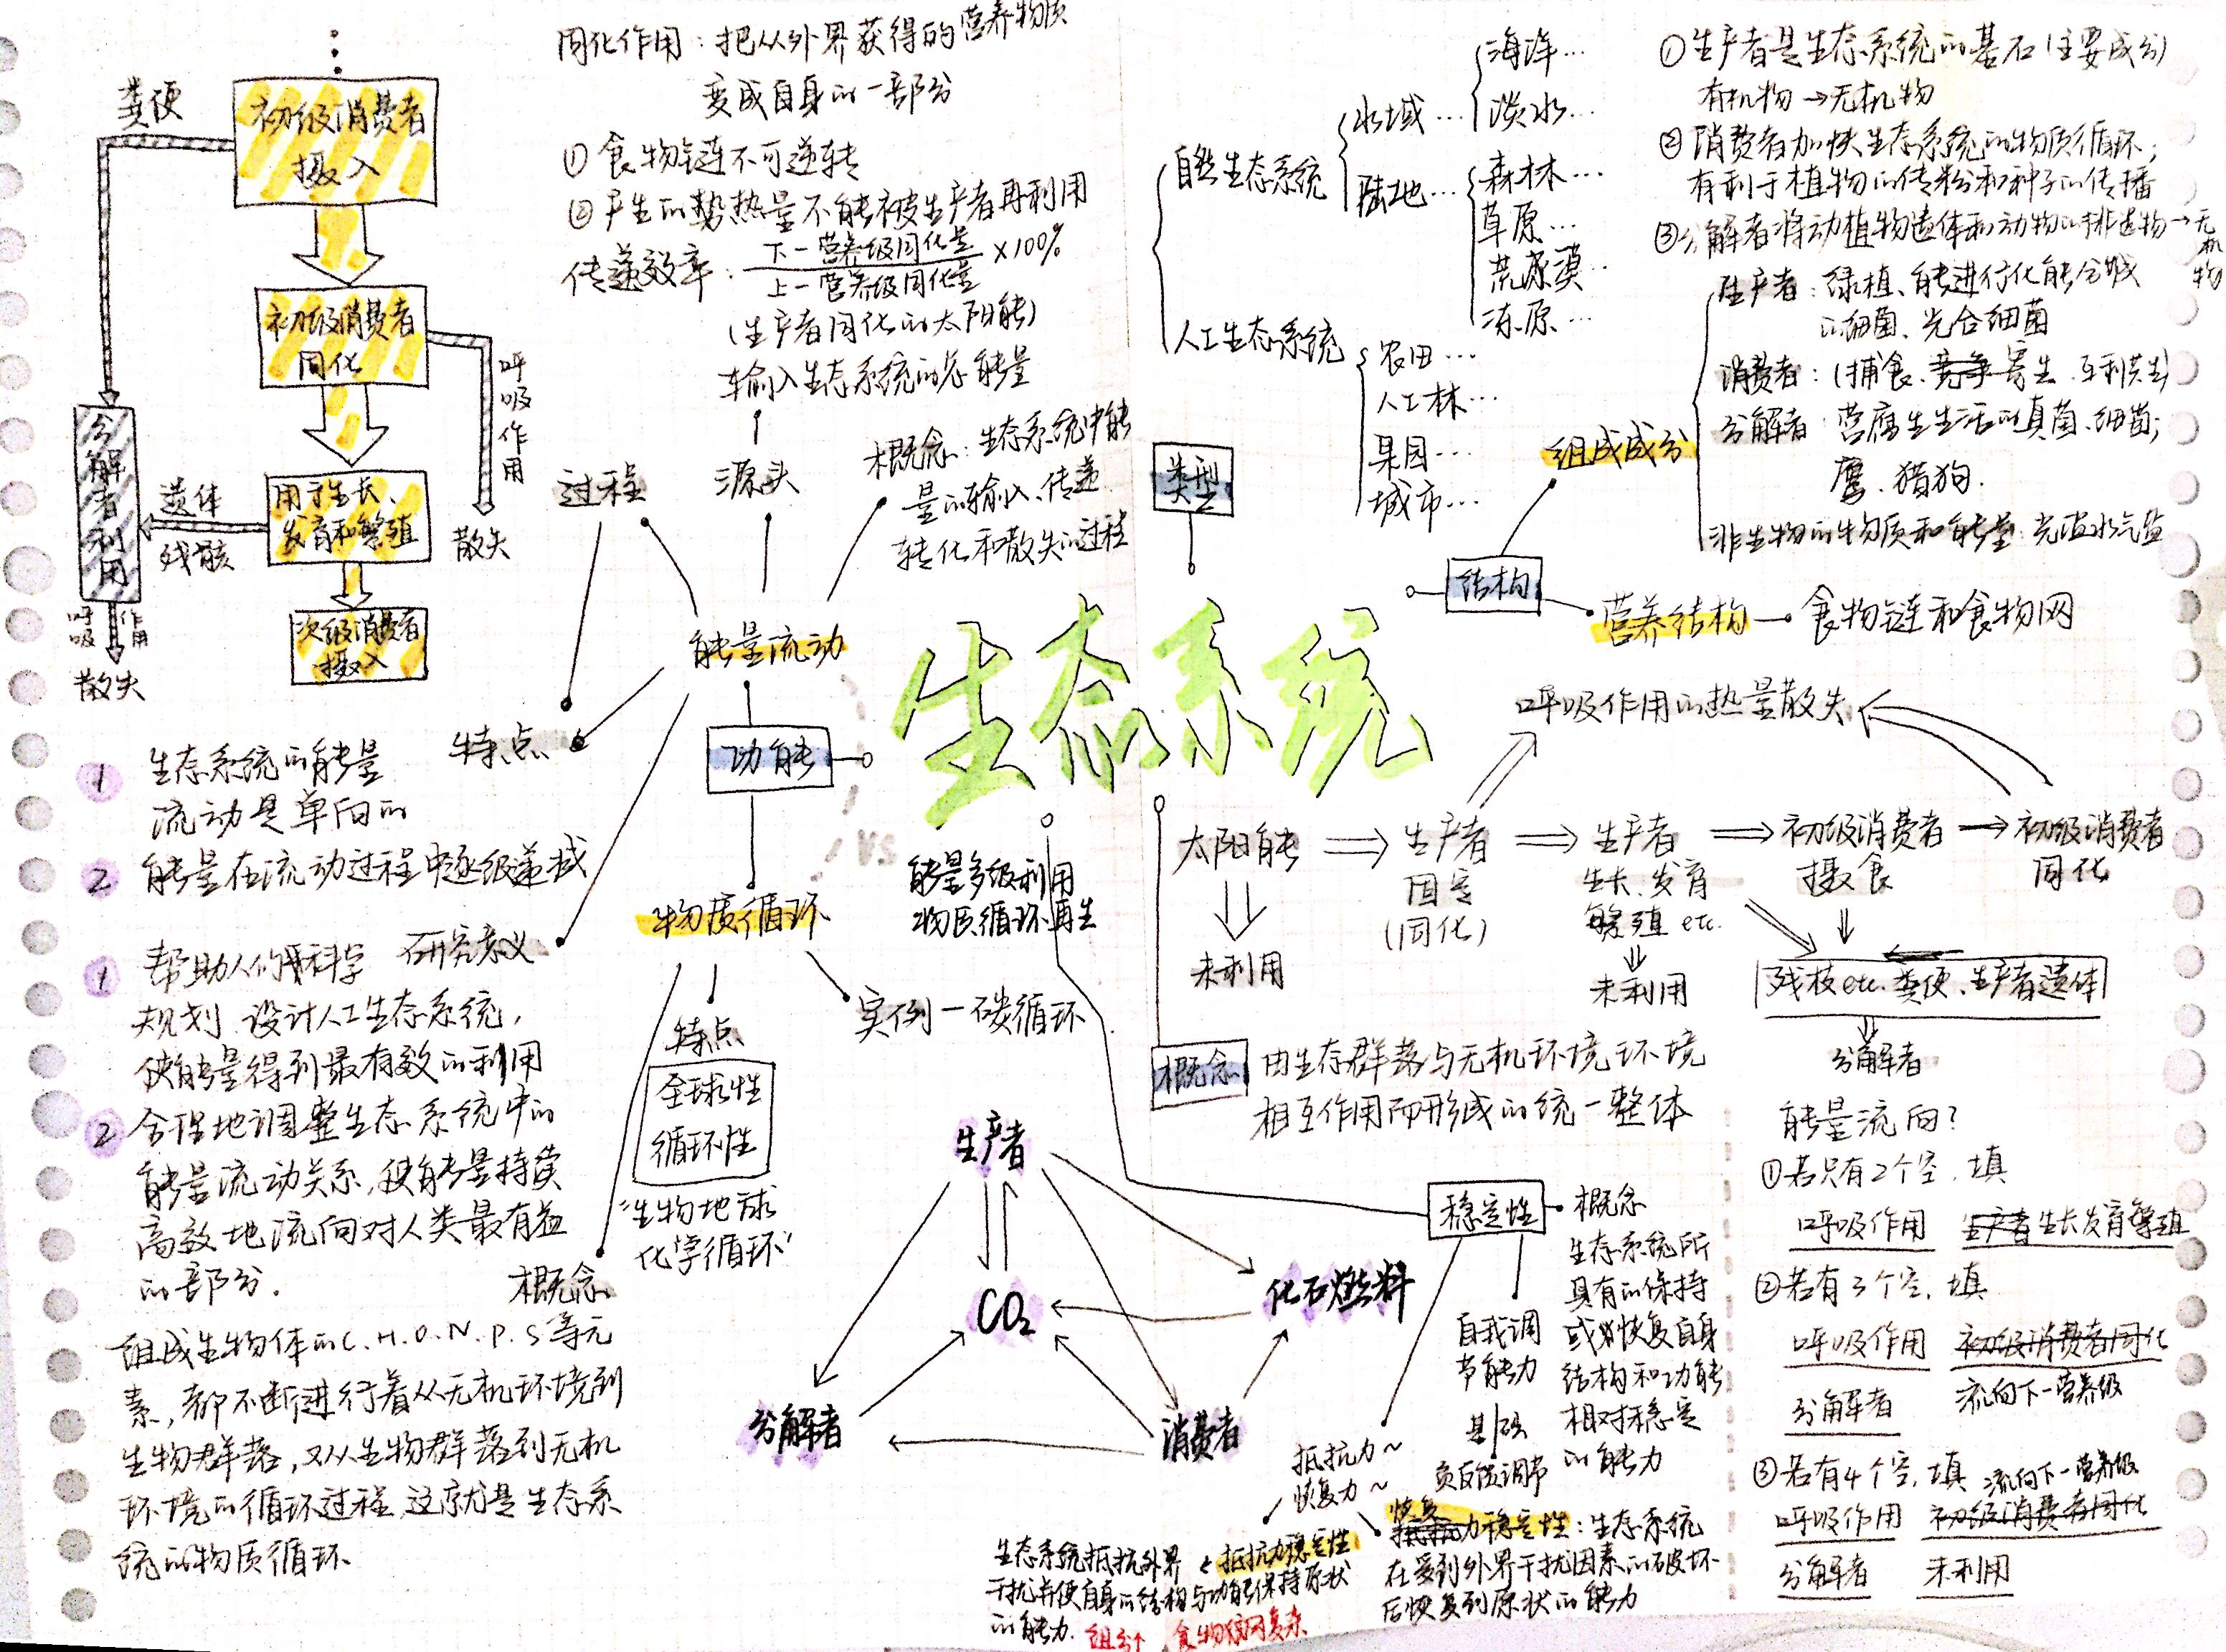 粪便
初级消费者
摄入
初级消费者
同化
呼吸作用
散失
用于生长、
发育和繁殖
遗体
残骸
分解者利用
呼吸
作用
散失
次级消费者
摄入
同化作用：把从外界获得的营养物质
变成自身的一部分
① 食物链不可逆转
② 产生的势热量不能被生产者再利用
传递效率：下一营养级同化量
上一营养级同化量
×100%
(生产者同化的太阳能)
输入生态系统的总能量
过程
源头
概念：生态系统中能
量的输入、传递
转化和散失的过程
能量流动
特点
1 生态系统的能量
流动是单向的
2 能量在流动过程中逐级递减
研究意义
1 帮助人们科学
规划、设计人工生态系统，
使能量得到最有效的利用
2 合理地调整生态系统中的
能量流动关系，使能量持续
高效地流向对人类最有益
的部分.
功能
VS
能量多级利用
物质循环再生
物质循环
特点
全球性
循环性
"生物地球
化学循环"
实例—碳循环
概念
组成生物体的C.H.O.N.P.S等元
素，都不断进行着从无机环境到
生物群落，又从生物群落到无机
环境的循环过程，这就是生态系
统的物质循环
生态系统
类型
自然生态系统
水域…
海洋…
淡水…
陆地…
森林…
草原…
荒漠…
冻原…
人工生态系统
农田…
人工林…
果园…
城市…
① 生产者是生态系统的基石(主要成分)
有机物→无机物
② 消费者加快生态系统的物质循环；
有利于植物的传粉和种子的传播
③ 分解者将动植物遗体和动物的排遗物→无机物
结构
组成成分
生产者：绿植、能进行化能合成
的细菌、光合细菌
消费者：(捕食、竞争 寄生、互利共生)
分解者：营腐生生活的真菌、细菌；
鹰、猎狗.
非生物的物质和能量：光温水气盐
营养结构
食物链和食物网
呼吸作用的热量散失
太阳能
生产者
固定
(同化)
生产者
生长、发育
繁殖 etc.
初级消费者
摄食
初级消费者
同化
未利用
未利用
残枝etc.粪便、生产者遗体
分解者
概念
由生态群落与无机环境环境
相互作用而形成的统一整体
能量流向？
① 若只有2个空，填
呼吸作用 生产者生长发育繁殖
② 若有3个空，填
呼吸作用 初级消费者同化
分解者 流向下一营养级
③ 若有4个空，填 流向下一营养级
呼吸作用 初级消费者同化
分解者 未利用
生产者
CO₂
化石燃料
分解者
消费者
稳定性
概念
生态系统所
具有的保持
或恢复自身
结构和功能
相对稳定
的能力
自我调
节能力
基础
负反馈调节
抵抗力~
恢复力~
抵抗力稳定性
生态系统抵抗外界
干扰并使自身的结构与功能保持原状
的能力.
组分↑ 食物网复杂
恢复
抵抗力稳定性：生态系统
在受到外界干扰因素的破坏
后恢复到原状的能力